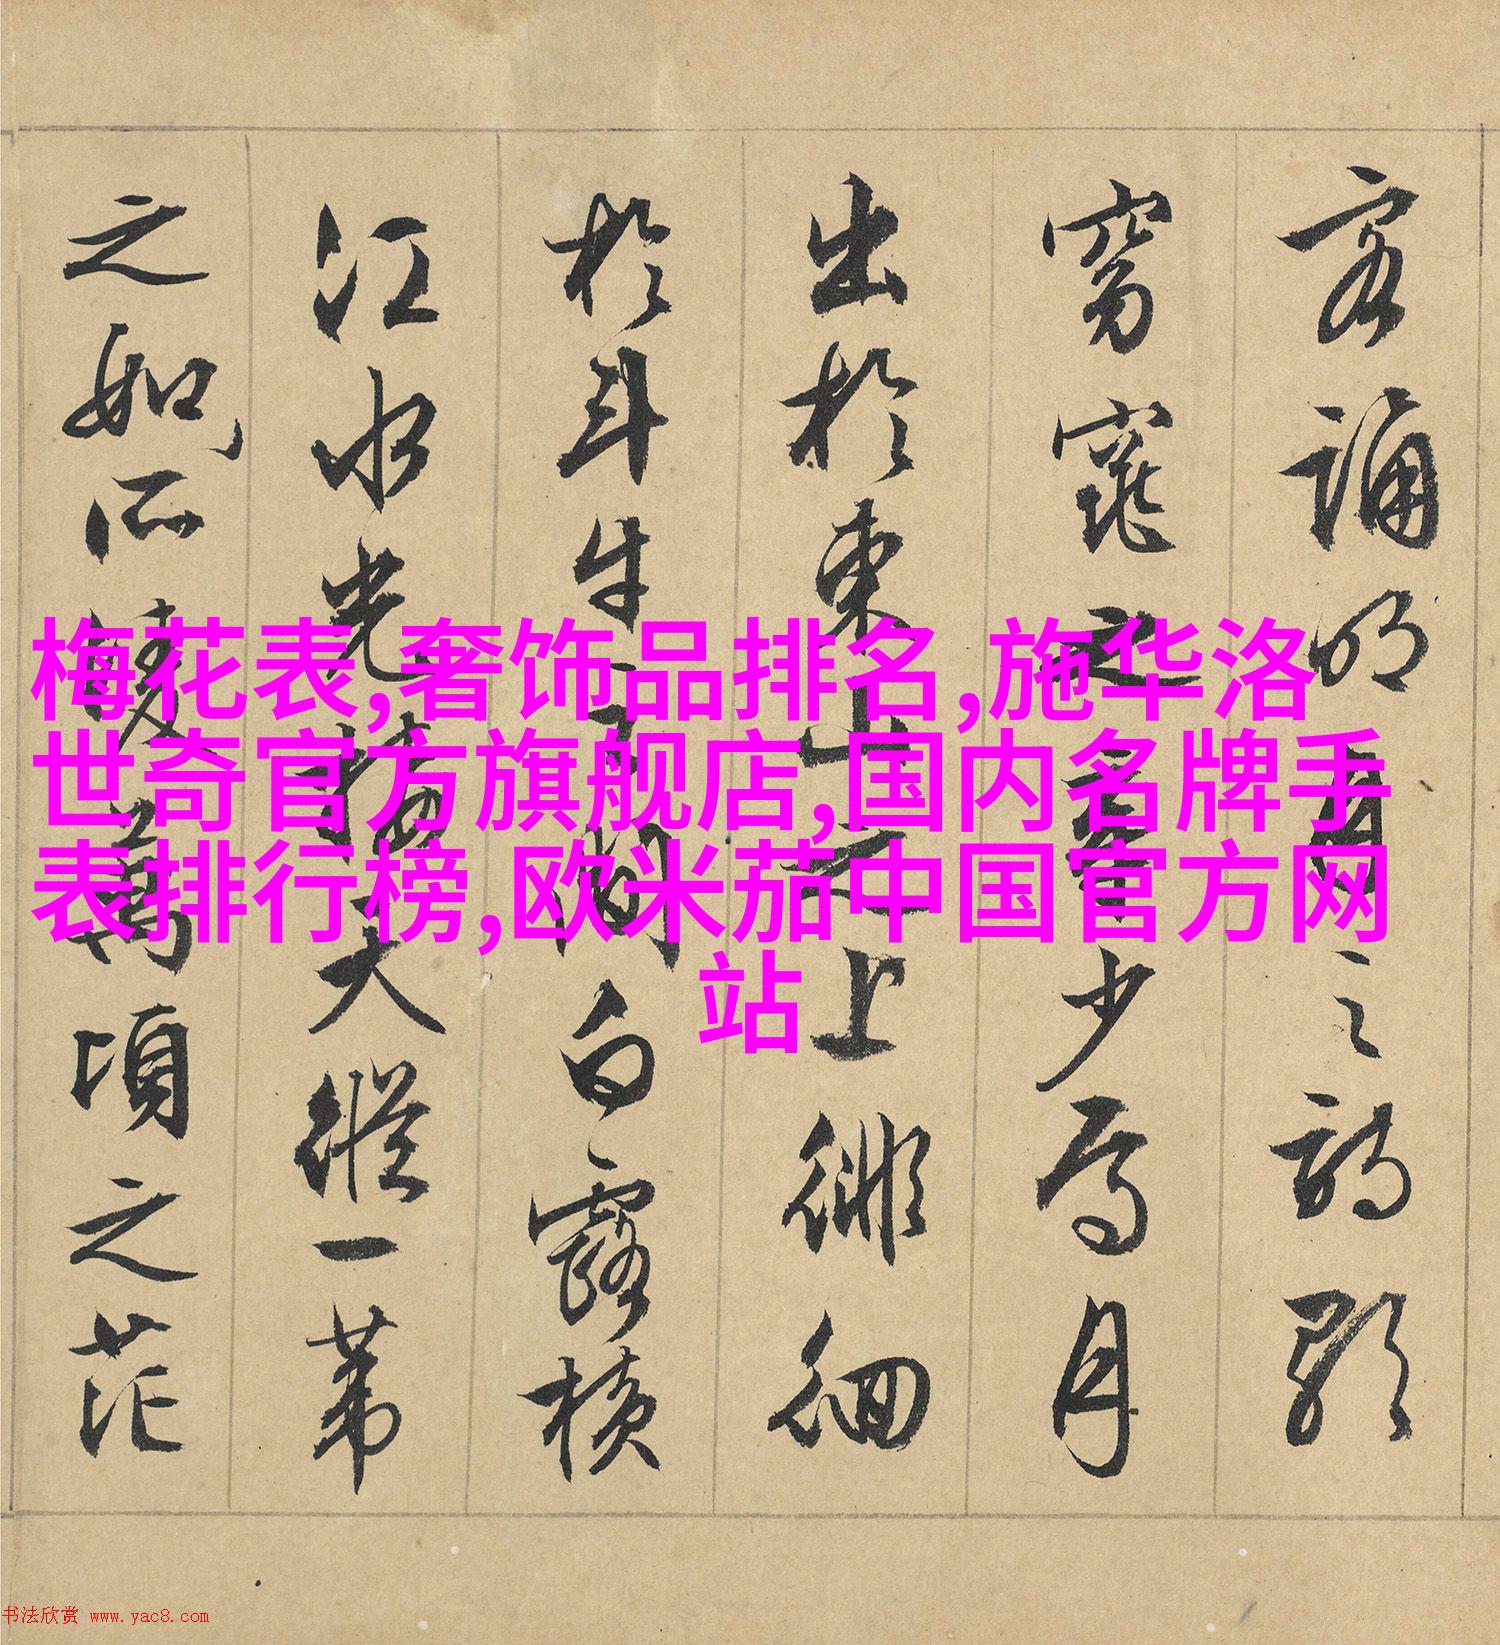 客誦明月之詩歌
窈窕之章少焉月
出於東山之上徘徊
於斗牛之間白露橫
江水光接天縱一葦
之如所凌萬頃之茫
梅花表,奢饰品排名,施华洛
世奇官方旗舰店,国内名牌手
表排行榜,欧米茄中国官方网
站
书法欣赏 www.yac8.com